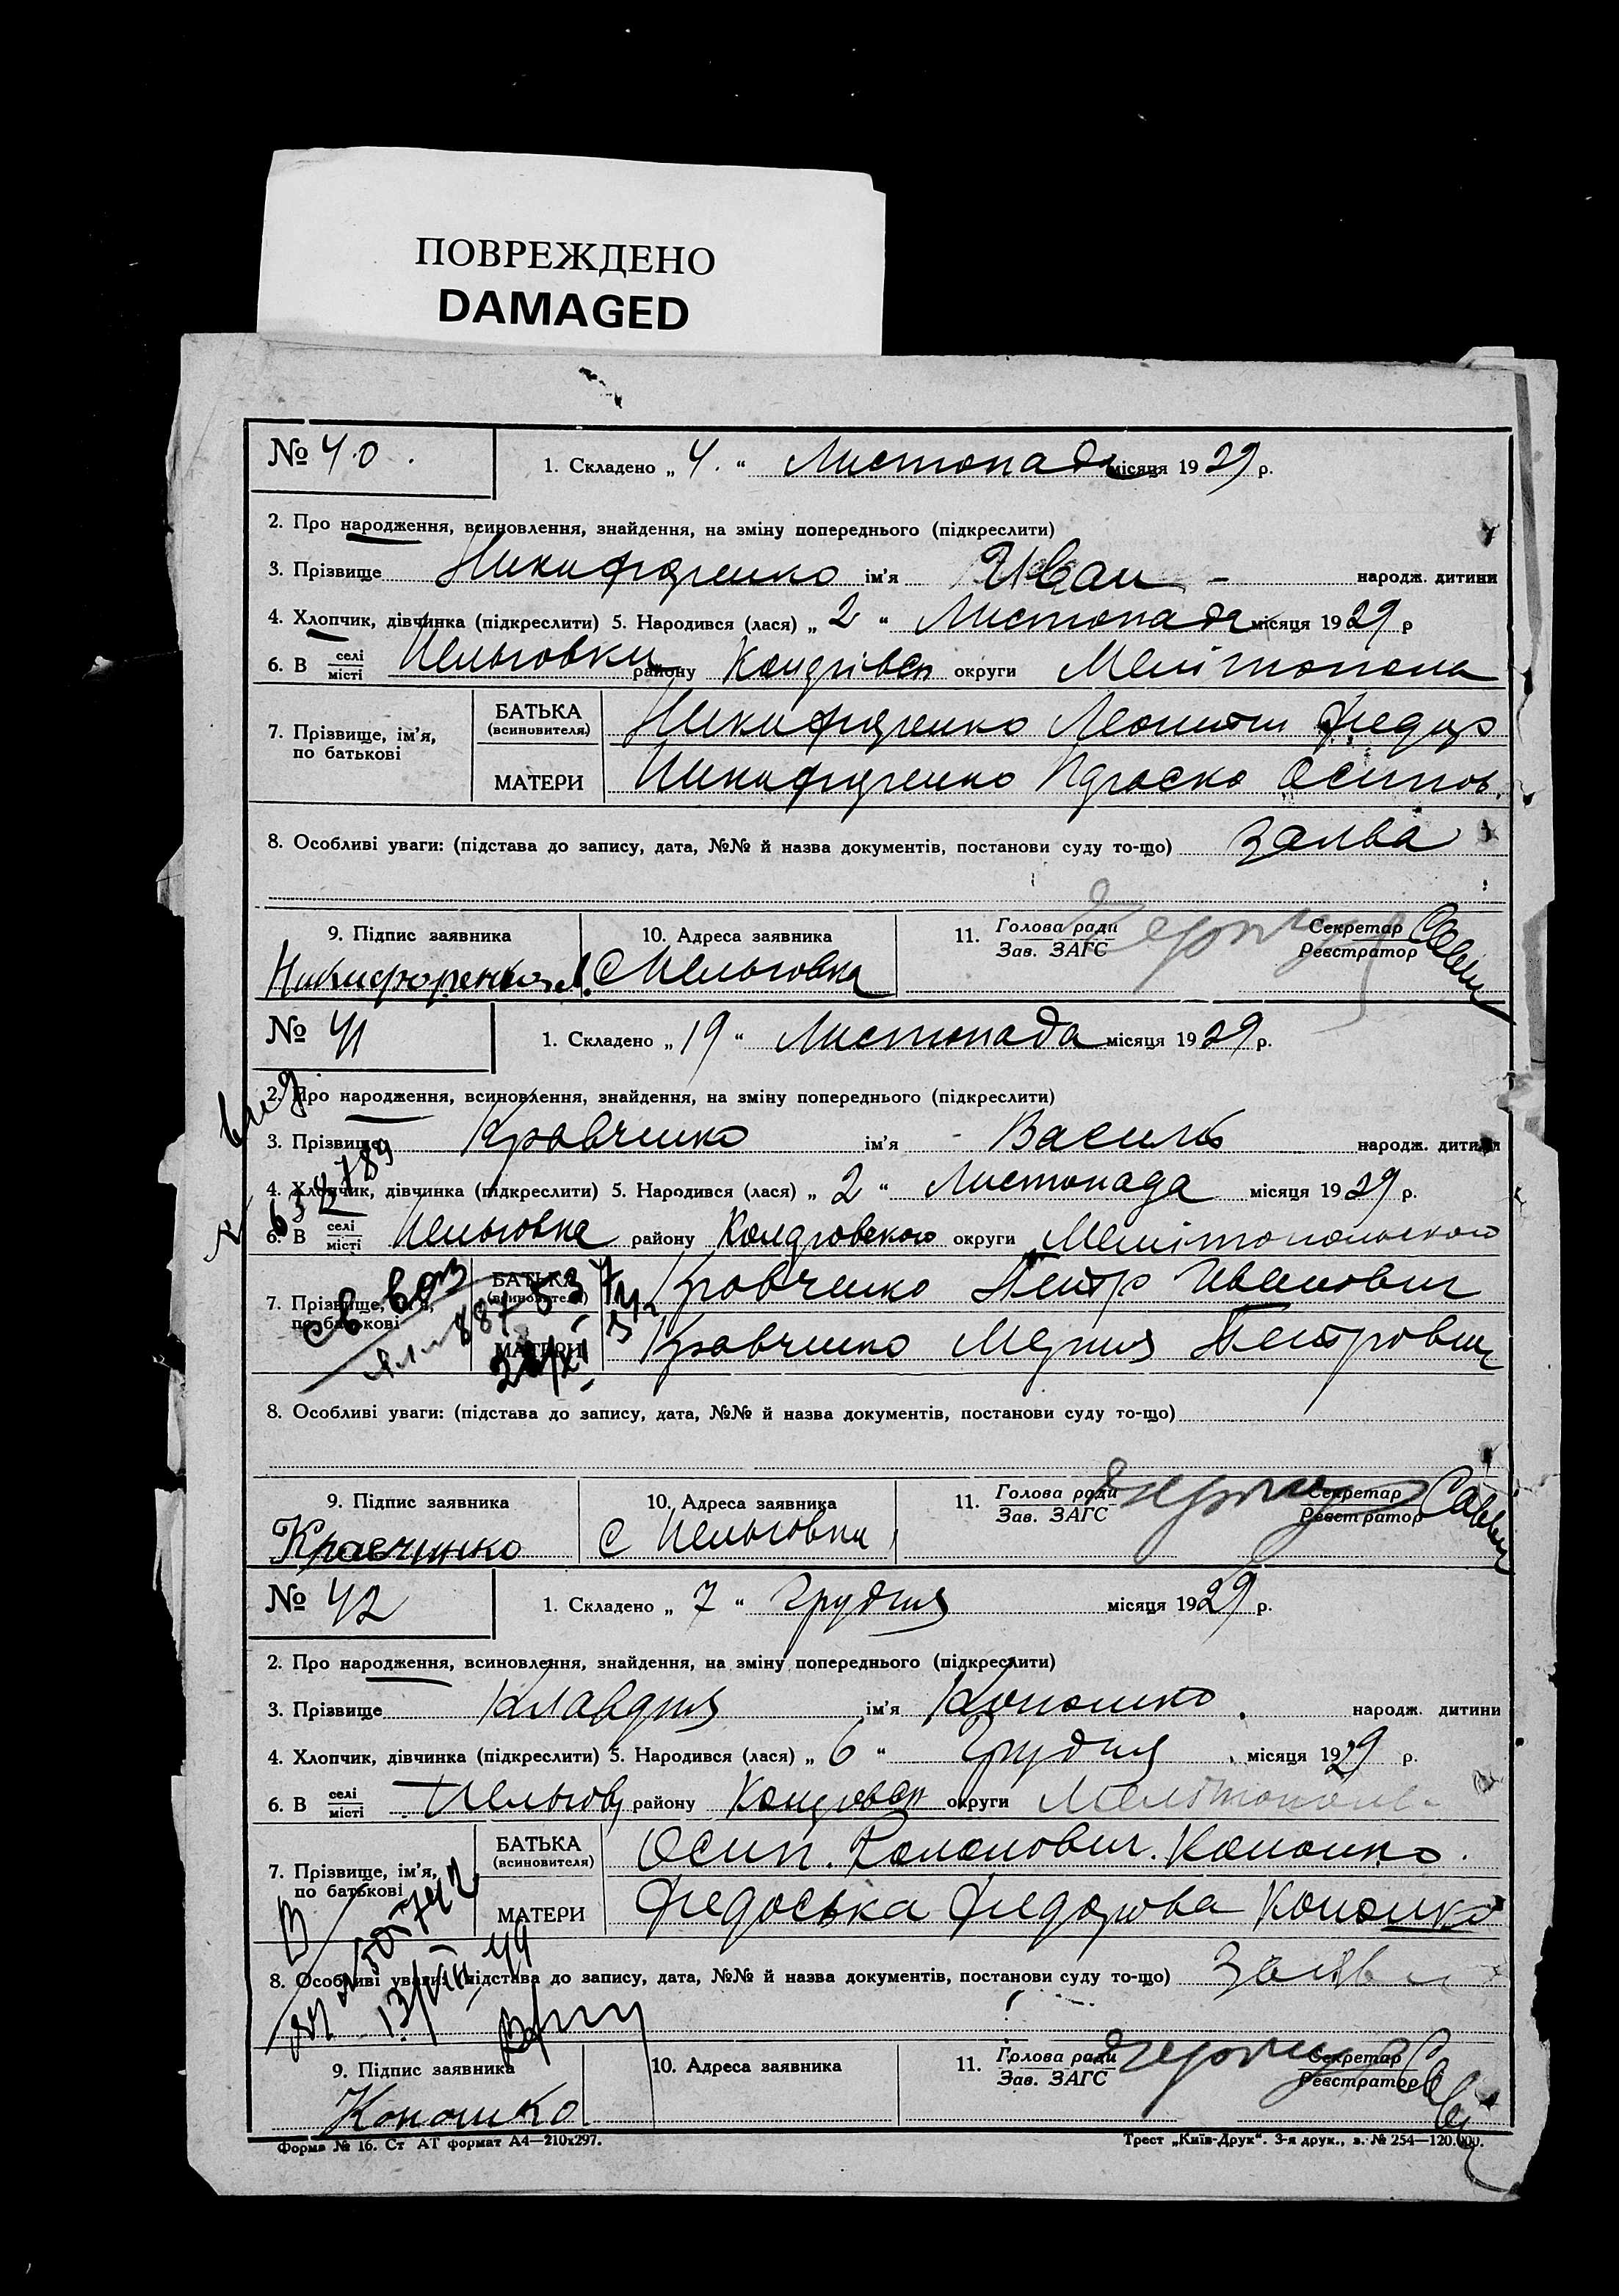 ПОВРЕЖДЕНО
DAMAGED
№ 40.
1. Складено „ 4. “ Листопада місяця 1929 р.
2. Про народження, всиновлення, знайдення, на зміну попереднього (підкреслити)
3. Прізвище Никифоренко ім'я Иван - народж. дитини
4. Хлопчик, дівчинка (підкреслити) 5. Народився (лася) „ 2 “ Листопада місяця 1929 р
6. В селі місті района округи Мелітополя
7. Прізвище, ім'я, по батькові
БАТЬКА (всиновителя) Никифоренко Федор
МАТЕРИ Никифоренко Осипов.
8. Особливі уваги: (підстава до запису, дата, №№ й назва документів, постанови суду то-що) заява
9. Підпис заявника
10. Адреса заявника
11. Голова ради Зав. ЗАГС
Секретар Реєстратор
Никифоренко Л.
№ 41
1. Складено „ 19 “ Листопада місяця 1929 р.
2. Про народження, всиновлення, знайдення, на зміну попереднього (підкреслити)
3. Прізвище Кравченко ім'я - Василь народж. дитини
4. Хлопчик, дівчинка (підкреслити) 5. Народився (лася) „ 2 “ Листопада місяця 1929 р.
6. В селі місті району округи Мелітопольского
7. Прізвище, ім'я, по батькові
БАТЬКА (всиновителя) Кравченко Петр Иванович
МАТЕРИ Кравченко Мария Петровна
8. Особливі уваги: (підстава до запису, дата, №№ й назва документів, постанови суду то-що)
9. Підпис заявника
10. Адреса заявника
11. Голова ради Зав. ЗАГС
Секретар Реєстратор
Кравчинко
№ 42
1. Складено „ 7 “ Грудня місяця 1929 р.
2. Про народження, всиновлення, знайдення, на зміну попереднього (підкреслити)
3. Прізвище Клавдия ім'я Коношко. народж. дитини
4. Хлопчик, дівчинка (підкреслити) 5. Народився (лася) „ 6 “ Грудня місяця 1929 р.
6. В селі місті району округи
7. Прізвище, ім'я, по батькові
БАТЬКА (всиновителя) Осип. Коношко.
МАТЕРИ Федоська Федорова Коношко
8. Особливі уваги: (підстава до запису, дата, №№ й назва документів, постанови суду то-що) Заява
13/VIII 49
9. Підпис заявника
10. Адреса заявника
11. Голова ради Зав. ЗАГС
Секретар Реєстратор
Коношко.
Форма № 16. Ст АТ формат А4—210x297.
Трест „Київ-Друк“. 3-я друк., з. № 254—120.000.